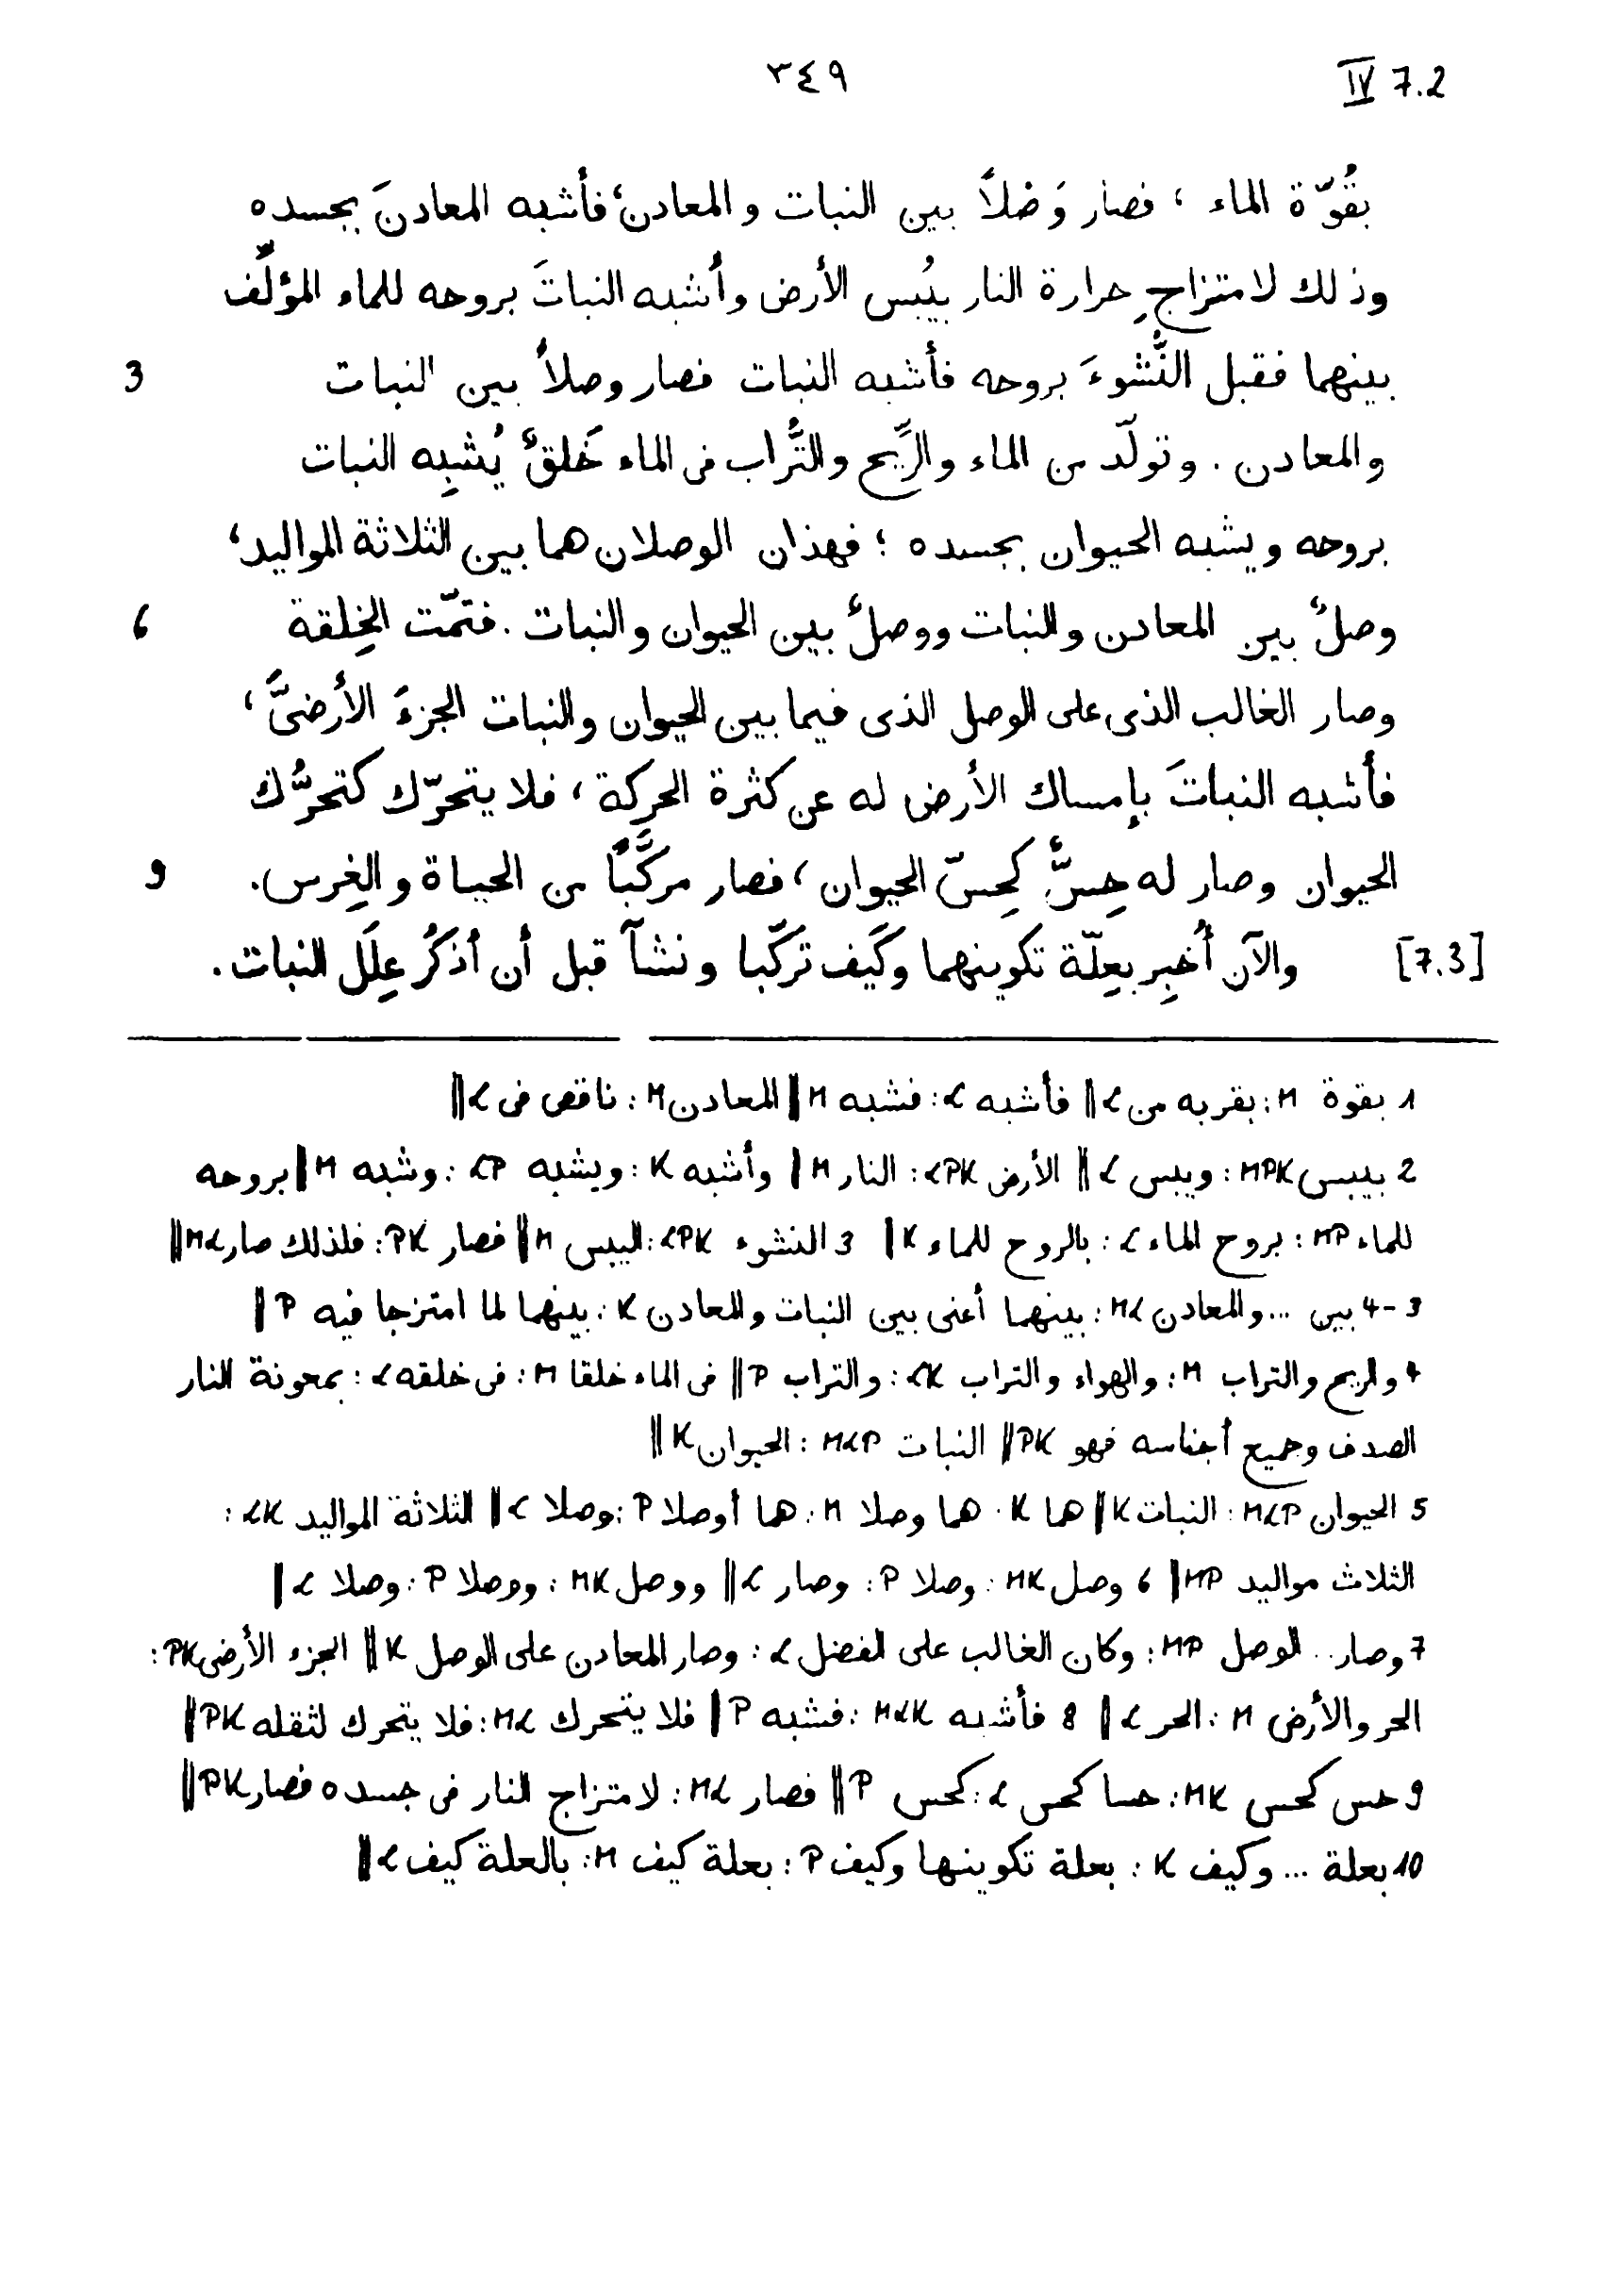 ٣٤٩ IV 7.2
بقُوّة الماء ، فصار وَصْلاً بين النبات والمعادن، فأشبه المعادنَ بجسده
وذلك لامتزاجِ حرارة النار بيُبس الأرض وأشبه النباتَ بروحه للماء المؤلِّف
بينهما فقبل النُّشوءَ بروحه فأشبه النبات فصار وصلاً بين النبات 3
والمعادن . وتولّد من الماء والرِّيح والتُّراب فى الماء خَلقٌ يُشبِه النبات
بروحه ويشبه الحيوان بجسده ؛ فهذان الوصلان هما بين الثلاثة المواليد،
وصلٌ بين المعادن والنبات ووصلٌ بين الحيوان والنبات . فتمّت الخِلقة 6
وصار الغالب الذى على الوصل الذى فيما بين الحيوان والنبات الجزءَ الأرضىَّ،
فأشبه النباتَ بإمساك الأرض له عن كثرة الحركة ، فلا يتحرّك كتحرُّك
الحيوان وصار له حِسٌّ كحِسّ الحيوان ، فصار مركَّبًا من الحياة والغِرس. 9
[7.3] والآن أُخبِر بعِلّة تكوينهما وكَيف تركّبا ونشآ قبل أن أذكُر عِلَل النبات .
1 بقوة M : بقربه من L || فأشبه L : فشبه M || المعادن M : ناقص فى L ||
2 بيبس MPK : ويبس L || الأرض LPK : النار M || وأشبه K : ويشبه LP : وشبه M || بروحه
للماء MP : بروح الماء L : بالروح للماء K || 3 النشوء LPK : اليبس M || فصار PK : فلذلك صار ML ||
3-4 بين ... والمعادن ML : بينهما أعنى بين النبات والمعادن K : بينهما لما امتزجا فيه P ||
4 والريح والتراب M : والهواء والتراب LK : والتراب P || فى الماء خلقا M : فى خلقه L : بمعونة النار
الصدف وجميع أجناسه فهو PK || النبات MLP : الحيوان K ||
5 الحيوان MLP : النبات K || هما K : هما وصلا M : هما أوصلا P : وصلا L || الثلاثة المواليد LK :
الثلاث مواليد MP || 6 وصل MK : وصلا P : وصار L || ووصل MK : ووصلا P : وصلا L ||
7 وصار .. الوصل MP : وكان الغالب على الفضل L : وصار المعادن على الوصل K || الجزء الأرضى PK :
الحر والأرض M : الحر L || 8 فأشبه MLK : فشبه P || فلا يتحرك ML : فلا يتحرك لثقله PK ||
9 حس كحس MK : حسا كحس L : كحس P || فصار ML : لامتزاج النار فى جسده فصار PK ||
10 بعلة ... وكيف K : بعلة تكوينها وكيف P : بعلة كيف M : بالعلة كيف L ||